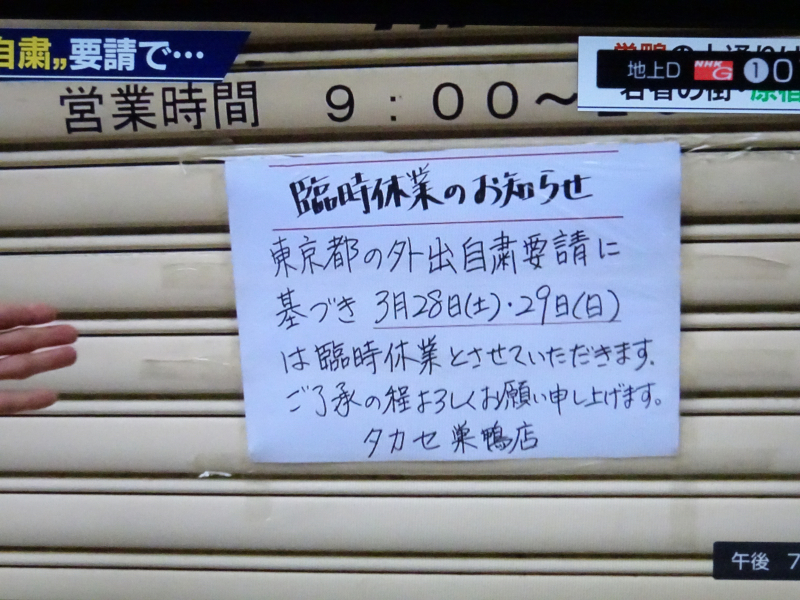 自粛„要請で…
地上D NHK G ①0
営業時間 9:00～
臨時休業のお知らせ
東京都の外出自粛要請に
基づき 3月28日(土)・29日(日)
は臨時休業とさせていただきます、
ご了承の程よろしくお願い申し上げます。
タカセ 巣鴨店
午後 7